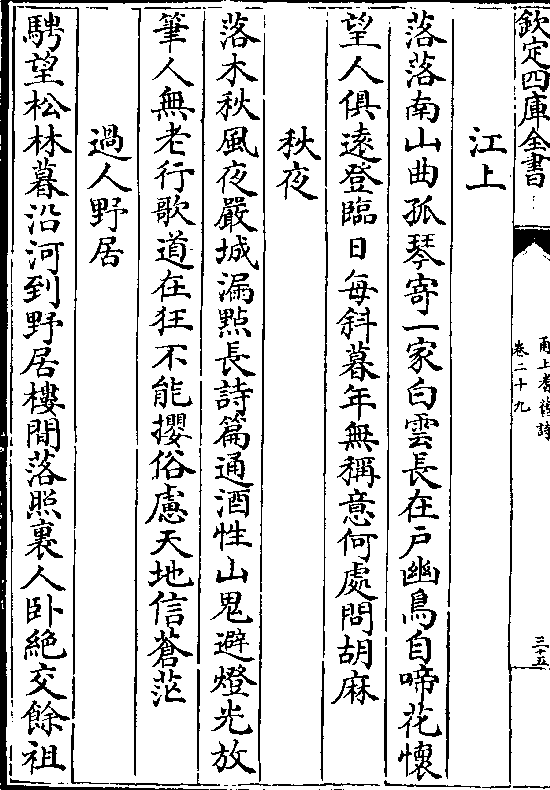 欽定四庫全書
甬上耆舊詩
卷二十九
三十五
江上
落落南山曲孤琴寄一家白雲長在戶幽鳥自啼花懷
望人俱遠登臨日每斜暮年無稱意何處問胡麻
秋夜
落木秋風夜嚴城漏點長詩篇通酒性山鬼避燈光放
筆人無老行歌道在狂不能攖俗慮天地信蒼茫
過人野居
騁望松林暮沿河到野居樓間落照裏人卧絶交餘祖